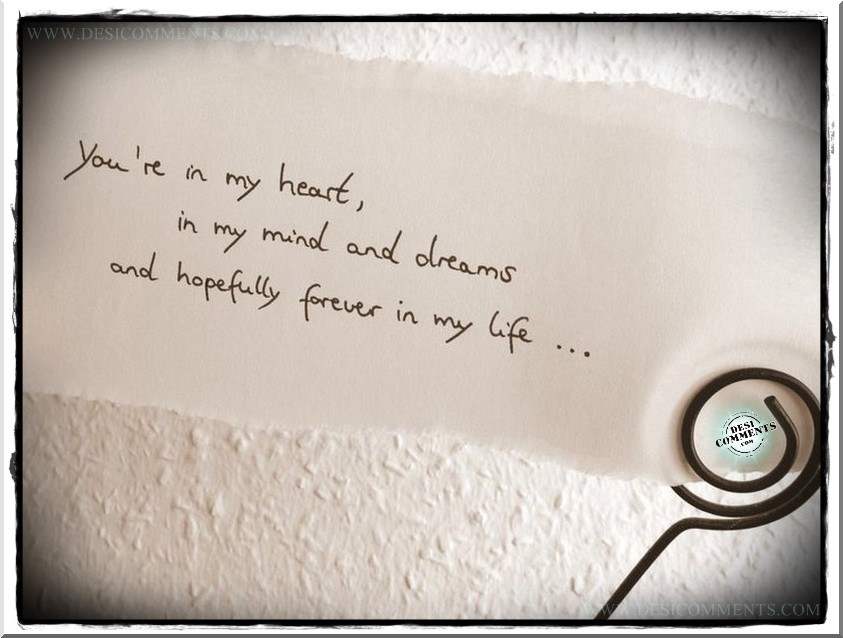 WWW.DESICOMMENTS.COM
You're in my heart,
in my mind and dreams
and hopefully forever in my life ...
DESI
COMMENTS
.COM
WWW.DESICOMMENTS.COM